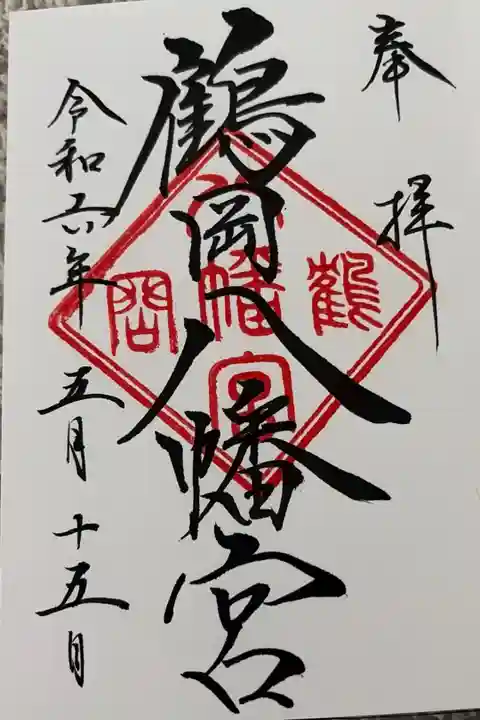 奉拝
鶴岡八幡宮
鶴
八幡宮
岡
令和六年五月十五日